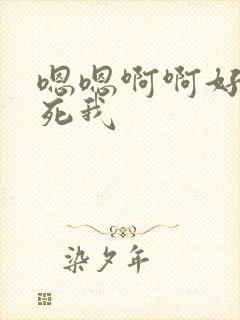 嗯嗯啊啊好
死我
染夕年